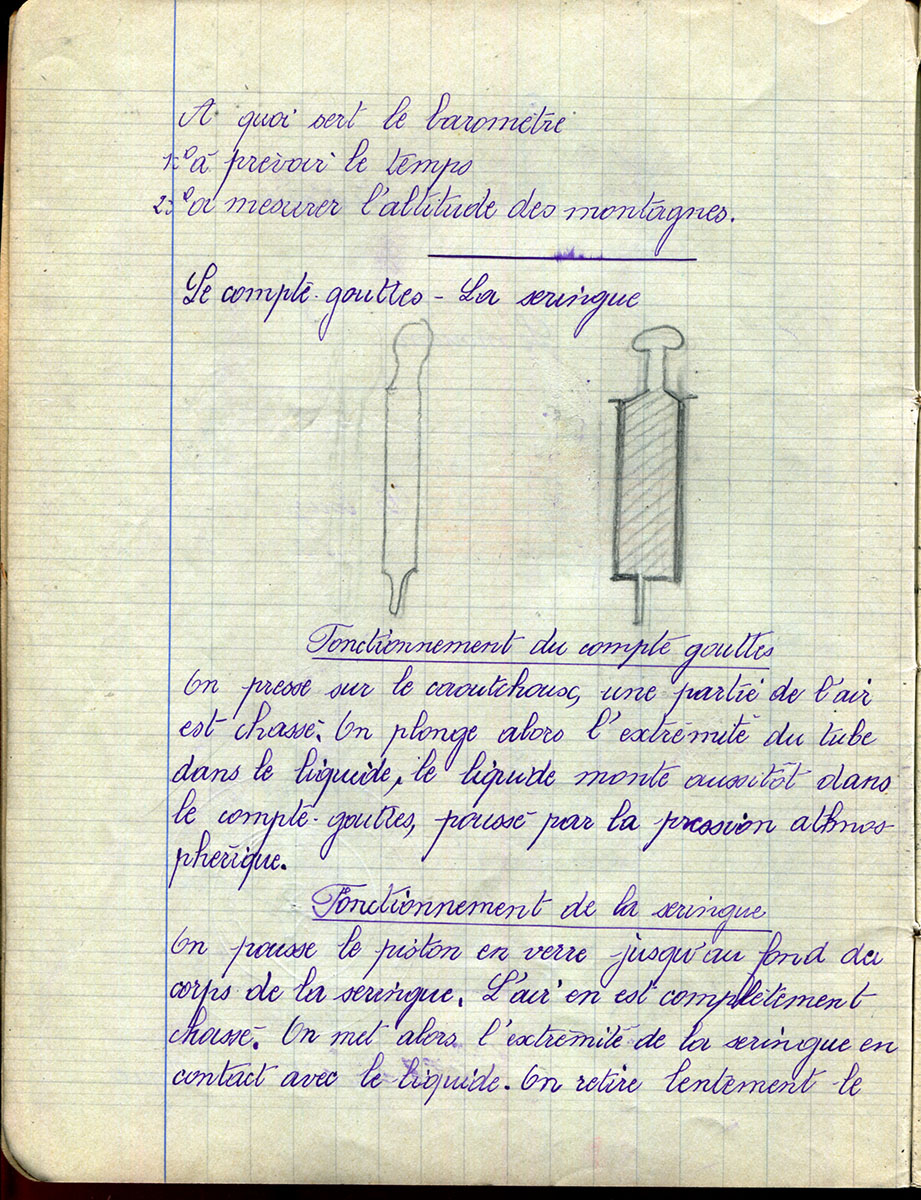 A quoi sert le baromètre
1º à prévoir le temps
2º à mesurer l'altitude des montagnes.
Le compte-gouttes - La seringue
Fonctionnement du compte gouttes
On presse sur le caoutchouc, une partie de l'air
est chassé. On plonge alors l'extrémité du tube
dans le liquide, le liquide monte aussitôt dans
le compte-gouttes, poussé par la pression athmos
phérique.
Fonctionnement de la seringue
On pousse le piston en verre jusqu'au fond du
corps de la seringue. L'air en est complètement
chassé. On met alors l'extrémité de la seringue en
contact avec le liquide. On retire lentement le